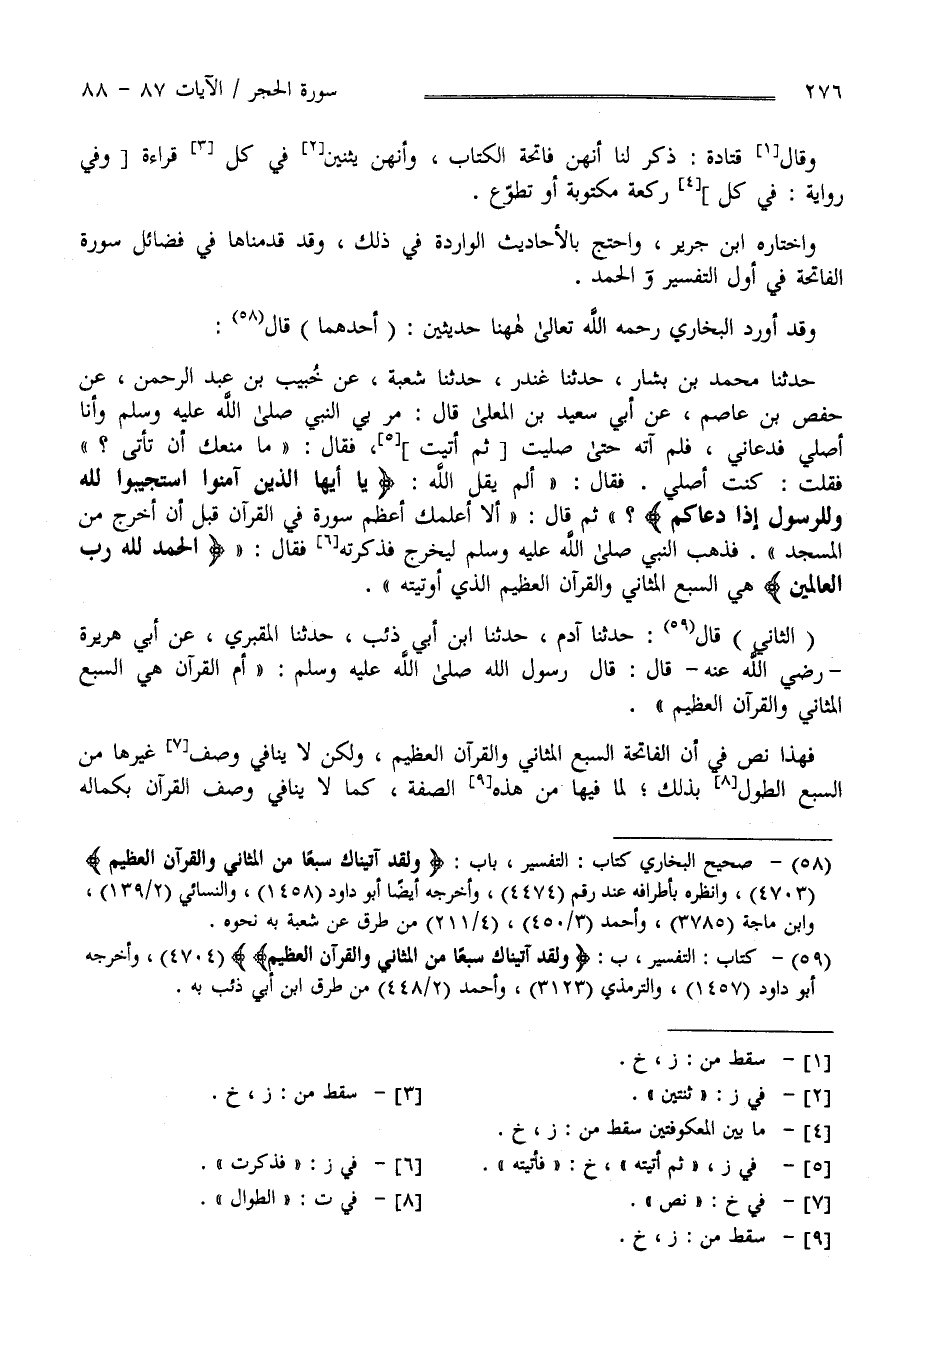 ٢٧٦ سورة الحجر / الآيات ٨٧ – ٨٨
وقال[١] قتادة : ذكر لنا أنهن فاتحة الكتاب ، وأنهن يثنين[٢] في كل [٣] قراءة [ وفي
رواية : في كل ][٤] ركعة مكتوبة أو تطوّع .
واختاره ابن جرير ، واحتج بالأحاديث الواردة في ذلك ، وقد قدمناها في فضائل سورة
الفاتحة في أول التفسير وَ الحمد .
وقد أورد البخاري رحمه اللَّه تعالىٰ لههنا حديثين : ( أحدهما ) قال(٥٨) :
حدثنا محمد بن بشار ، حدثنا غندر ، حدثنا شعبة ، عن خُبيب بن عبد الرحمن ، عن
حفص بن عاصم ، عن أبي سعيد بن المعلىٰ قال : مر بي النبي صلىٰ اللَّه عليه وسلم وأنا
أصلي فدعاني ، فلم آته حتىٰ صليت [ ثم أتيت ][٥]، فقال : « ما منعك أن تأتى ؟ »
فقلت : كنت أصلي . فقال : « ألم يقل اللَّه : ﴿ يا أيها الذين آمنوا استجيبوا لله
وللرسول إذا دعاكم ﴾ ؟ » ثم قال : « ألا أعلمك أعظم سورة في القرآن قبل أن أخرج من
المسجد » . فذهب النبي صلىٰ اللَّه عليه وسلم ليخرج فذكرته[٦] فقال : « ﴿ الحمد لله رب
العالمين ﴾ هي السبع المثاني والقرآن العظيم الذي أوتيته » .
( الثاني ) قال(٥٩) : حدثنا آدم ، حدثنا ابن أبي ذئب ، حدثنا المقبري ، عن أبي هريرة
– رضي اللَّه عنه – قال : قال رسول الله صلىٰ اللَّه عليه وسلم : « أم القرآن هي السبع
المثاني والقرآن العظيم » .
فهذا نص في أن الفاتحة السبع المثاني والقرآن العظيم ، ولكن لا ينافي وصف[٧] غيرها من
السبع الطول[٨] بذلك ؛ لما فيها من هذه[٩] الصفة ، كما لا ينافي وصف القرآن بكماله
(٥٨) – صحيح البخاري كتاب : التفسير ، باب : ﴿ ولقد آتيناك سبعًا من المثاني والقرآن العظيم ﴾
(٤٧٠٣) ، وانظره بأطرافه عند رقم (٤٤٧٤) ، وأخرجه أيضًا أبو داود (١٤٥٨) ، والنسائي (١٣٩/٢) ،
وابن ماجة (٣٧٨٥) ، وأحمد (٤٥٠/٣) ، (٢١١/٤) من طرق عن شعبة به نحوه .
(٥٩) – كتاب : التفسير ، ب : ﴿ ولقد آتيناك سبعًا من المثاني والقرآن العظيم﴾ ﴾ (٤٧٠٤) ، وأخرجه
أبو داود (١٤٥٧) ، والترمذي (٣١٢٣) ، وأحمد (٤٤٨/٢) من طرق ابن أبي ذئب به .
[١] – سقط من : ز ، خ .
[٢] – في ز : « ثنتين » . [٣] – سقط من : ز ، خ .
[٤] – ما بين المعكوفتين سقط من : ز ، خ .
[٥] – في ز ، « ثم أتيته » ، خ : « فأتيته » . [٦] – في ز : « فذكرت » .
[٧] – في خ : « نص » . [٨] – في ت : « الطوال » .
[٩] – سقط من : ز ، خ .